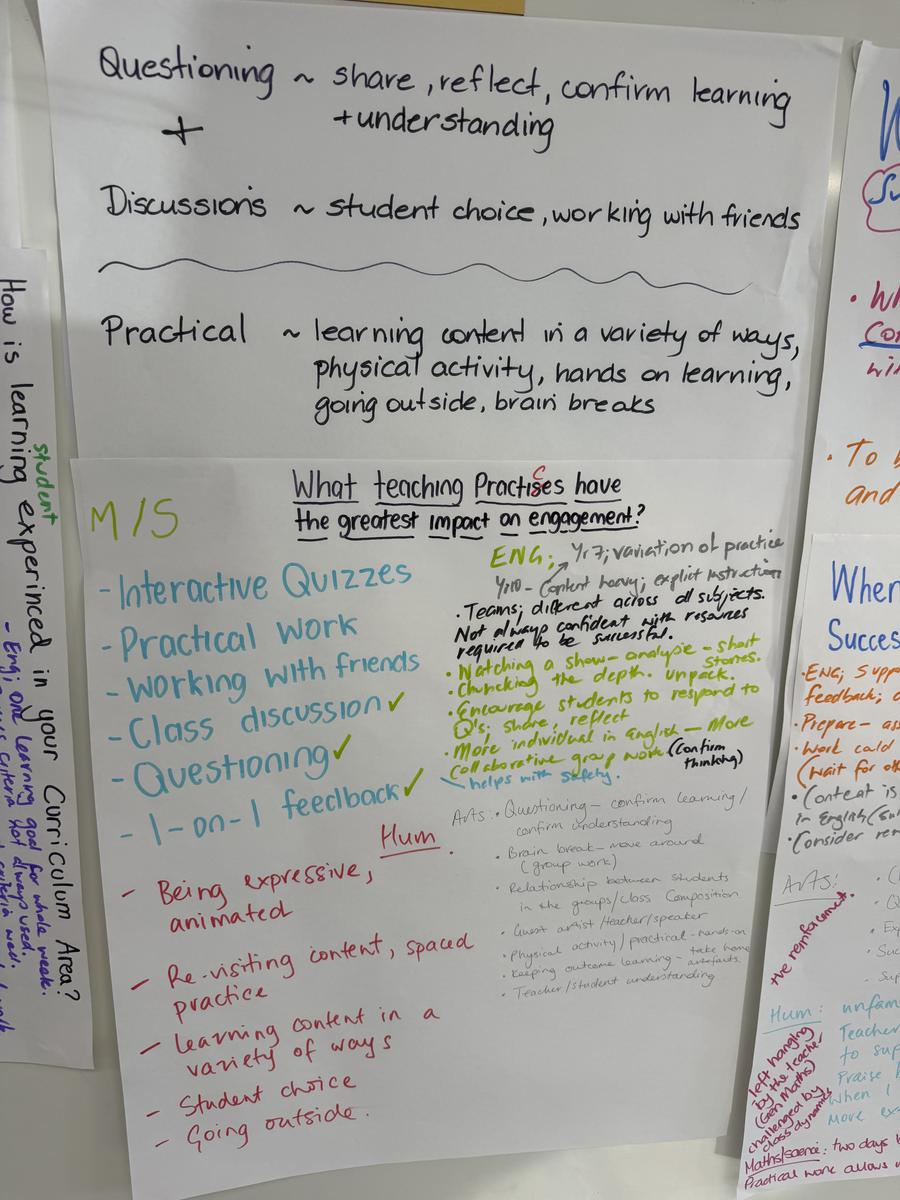 Questioning ~ share, reflect, confirm learning
+ +understanding
Discussions ~ student choice, working with friends
Practical ~ learning content in a variety of ways,
physical activity, hands on learning,
going outside, brain breaks
What teaching Practices have
the greatest impact on engagement?
M/S
- Interactive Quizzes
- Practical work
- Working with friends
- Class discussion ✓
- Questioning ✓
- 1-on-1 feedback ✓
Hum
- Being expressive,
animated
- Re-visiting content, spaced
practice
- Learning content in a
variety of ways
- Student choice
- Going outside.
ENG; Yr7; variation of practice
Yr10 - Content heavy; explict instruction
• Teams; different across all subjects.
Not always confident with resources
required to be successful.
• Watching a show - analysie - short
stories.
• Chuncking the depth. unpack.
• Encourage students to respond to
Q's; share, reflect
• More individual in English - More
Collaborative group work (Confirm
thinking)
helps with safety.
Arts: • Questioning - confirm learning/
confirm understanding
• Brain break - move around
(group work)
• Relationship between students
in the groups/class Composition
• Guest artist/teacher/speaker
• Physical activity/practical - hands-on
• Keeping outcome learning - take home
artefacts.
• Teacher/student understanding
How is student learning experinced in your Curriculum Area?
- Eng; one learning goal for whole week.
W
Su
• Wh
Con
wi
• To b
and
When
Succes
• ENG; Supp
feedback;
• Prepare - ass
• Work could
(wait for oth
• Content is
in English
• Consider ren
Arts:
the reinforcement.
Hum: unfam
Teacher
to sup
Praise
When I
More ex
left hanging
by the teacher
(Gen Maths)
challenged by
class dynamics
Maths/science: two days b
Practical work allows